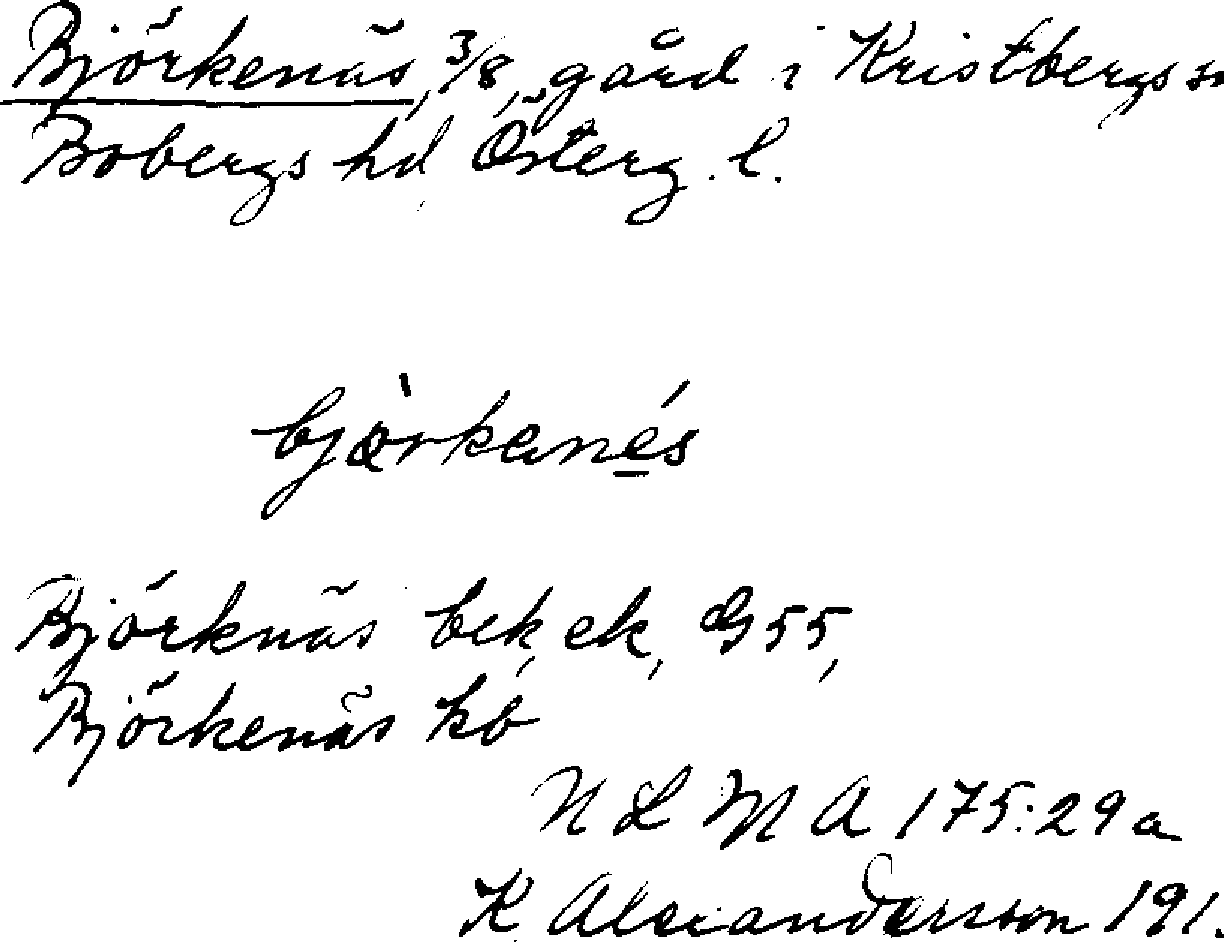 Björkenäs, 3/8, gård i Kristbergs sn
Bobergs hd, Österg. l.
Björknäs bek, ek, G 55,
Björkenäs kb
N L M A 175:29a
K. Alexandersson 191.